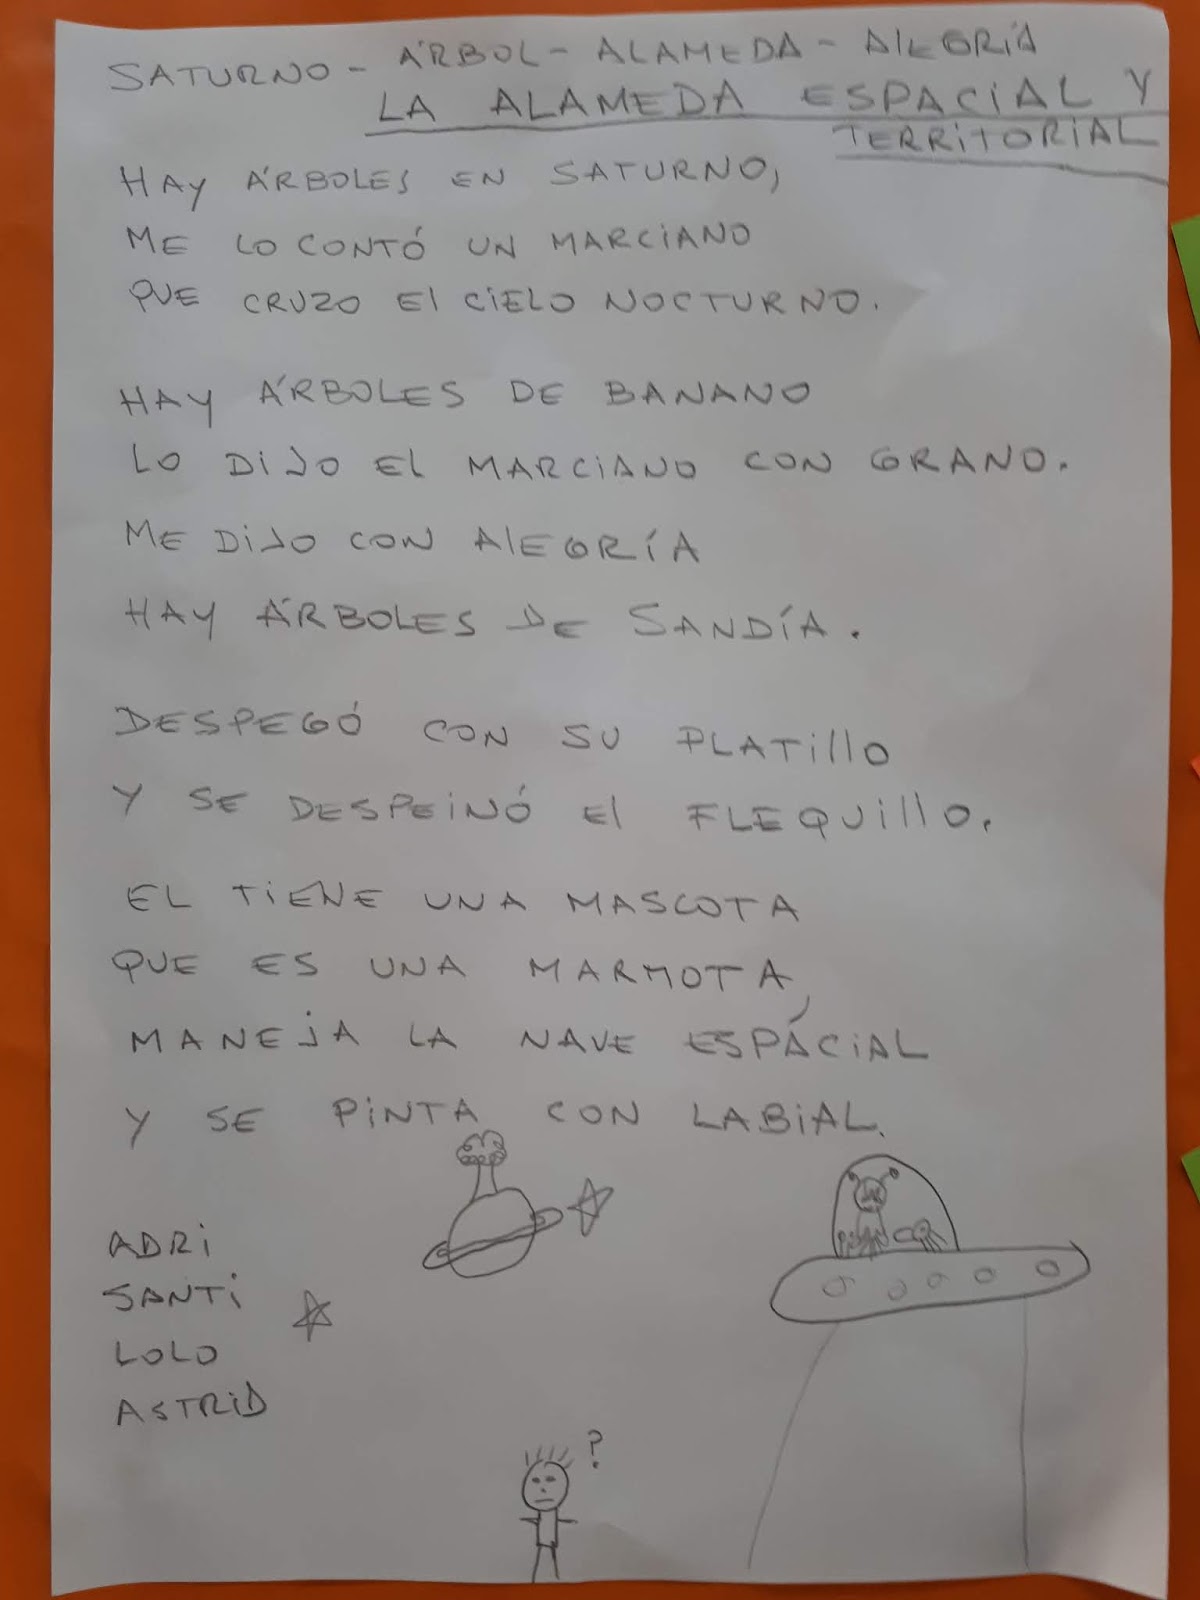 SATURNO - ÁRBOL - ALAMEDA - ALEGRÍA
LA ALAMEDA ESPACIAL Y
TERRITORIAL
HAY ÁRBOLES EN SATURNO,
ME LO CONTÓ UN MARCIANO
QUE CRUZO El CIELO NOCTURNO.
HAY ÁRBOLES DE BANANO
LO DIJO EL MARCIANO CON GRANO.
ME DIJO CON AlEGRÍA
HAY ÁRBOLES DE SANDÍA.
DESPEGÓ CON SU PLATillO
Y SE DESPEINÓ El FLEQUillO.
EL TIENE UNA MASCOTA
QUE ES UNA MARMOTA,
MANEJA LA NAVE ESPÁCIAL
Y SE PINTA CON LABIAL.
ADRI
SANTI
LOLO
ASTRID
?